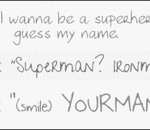 I wanna be a superhe
guess my name.
: "Superman? Ironm
: "(smile) YOURMAN